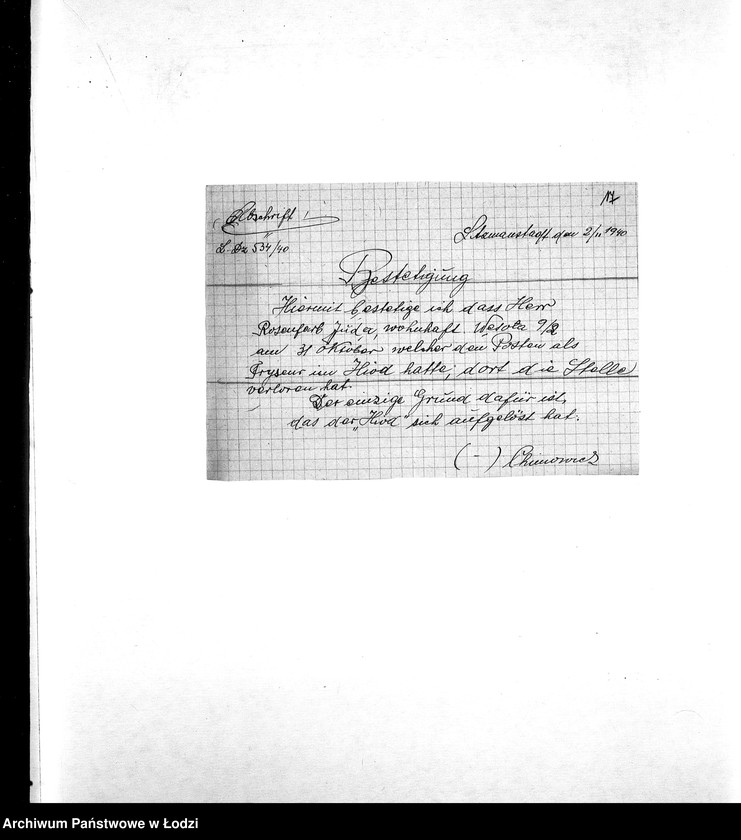 17
Abschrift!
L. Dz 534/40
Litzmanstadt den 2/11 1940
Bestetigung
Hiermit bestetige ich dass Herr
Rosenfarb Juda, wohnhaft Wesoła 9/
am 31 Oktober welcher den Posten als
Fryseur im Hiod hatte, dort die Stelle
verloren hat.
Der einzige Grund dafür ist,
das der „Hiod" sich aufgelöst hat.
(-)
Archiwum Państwowe w Łodzi